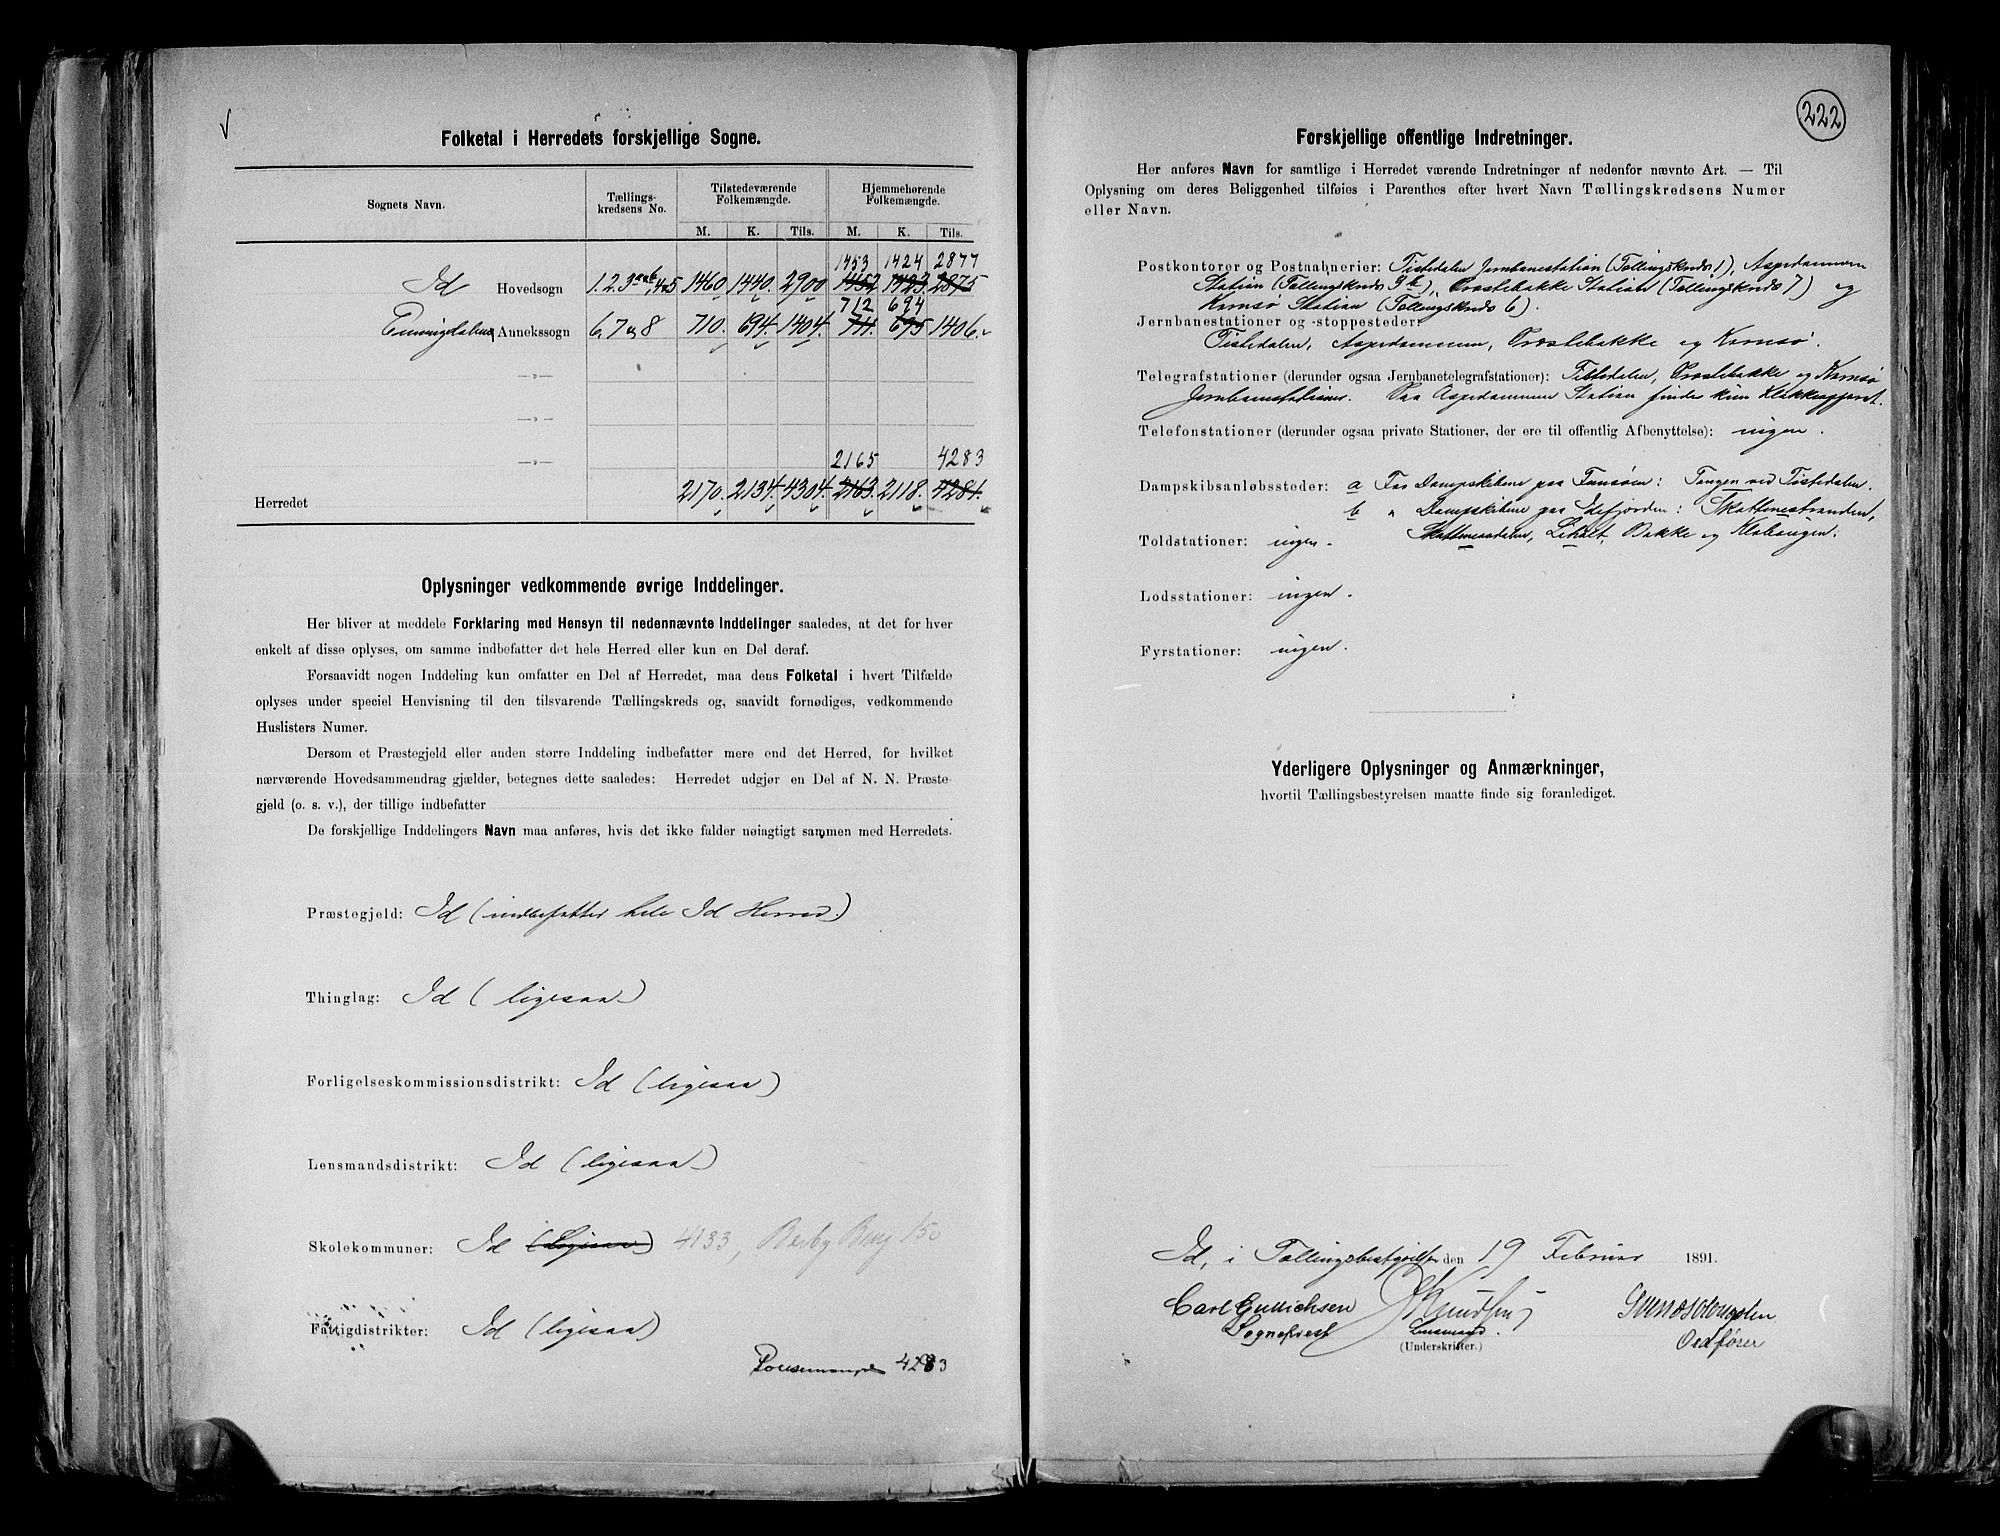 Folketal i Herredets forskjellige Sogne.
Sognets Navn.
Tællings-
kredsens No.
Tilstedeværende
Folkemængde.
Hjemmehørende
Folkemængde.
M. K. Tils. M. K. Tils.
1453 1424 2877
Id Hovedsogn 1.2.3 a og b, 4 og 5 1460 1440 2900 1452 1423 2875
712 694
Annekssogn 6, 7 og 8 710. 694. 1404. 711 695 1406.
—„—
—„—
—„—
2165 4283
Herredet 2170. 2134. 4304. 2163. 2118. 4281.
Oplysninger vedkommende øvrige Inddelinger.
Her bliver at meddele Forklaring med Hensyn til nedennævnte Inddelinger saaledes, at det for hver
enkelt af disse oplyses, om samme indbefatter det hele Herred eller kun en Del deraf.
Forsaavidt nogen Inddeling kun omfatter en Del af Herredet, maa dens Folketal i hvert Tilfælde
oplyses under speciel Henvisning til den tilsvarende Tællingskreds og, saavidt fornødiges, vedkommende
Huslisters Numer.
Dersom et Præstegjeld eller anden større Inddeling indbefatter mere end det Herred, for hvilket
nærværende Hovedsammendrag gjælder, betegnes dette saaledes: Herredet udgjør en Del af N. N. Præste-
gjeld (o. s. v.), der tillige indbefatter
De forskjellige Inddelingers Navn maa anføres, hvis det ikke falder nøiagtigt sammen med Herredets.
Præstegjeld: Id (indbefatter hele Id Herred.)
Thinglag: Id (ligesaa)
Forligelseskommissionsdistrikt: Id (ligesaa)
Lensmandsdistrikt: Id (ligesaa)
Skolekommuner: Id (Ligesaa) 4133, Berby Brug 150
Fattigdistrikter: Id (ligesaa)
4283
222
Forskjellige offentlige Indretninger.
Her anføres Navn for samtlige i Herredet værende Indretninger af nedenfor nævnte Art. — Til
Oplysning om deres Beliggenhed tilføies i Parenthes efter hvert Navn Tællingskredsens Numer
eller Navn.
Postkontorer og Postaabnerier: Tistedalen Jernbanestation (Tællingskreds 1), Aspedammen
Station (Tællingskreds 3 b), Præstebakke Station (Tællingskreds 7) og
Kornsø Station (Tællingskreds 6).
Jernbanestationer og -stoppesteder:
Tistedalen, Aspedammen, Præstebakke og Kornsø.
Telegrafstationer (derunder ogsaa Jernbanetelegrafstationer): Tistedalen, Præstebakke og Kornsø
Jernbanestationer. Paa Aspedammen Station findes kun Klokkeapparat.
Telefonstationer (derunder ogsaa private Stationer, der ere til offentlig Afbenyttelse): ingen.
Dampskibsanløbssteder: a For Dampskibene paa Femsøen: Tangen ved Tistedalen.
b " Dampskibene paa Idefjorden: Skattnestranden,
Toldstationer: ingen. Liholt, Bakke og
Lodsstationer: ingen.
Fyrstationer: ingen.
Yderligere Oplysninger og Anmærkninger,
hvortil Tællingsbestyrelsen maatte finde sig foranlediget.
Id, i Tællingsbestyrelsen den 19 Februar 1891.
Carl Gullichsen Knudsen
Sogneprest Lensmand. Ordfører
(Underskrifter.)